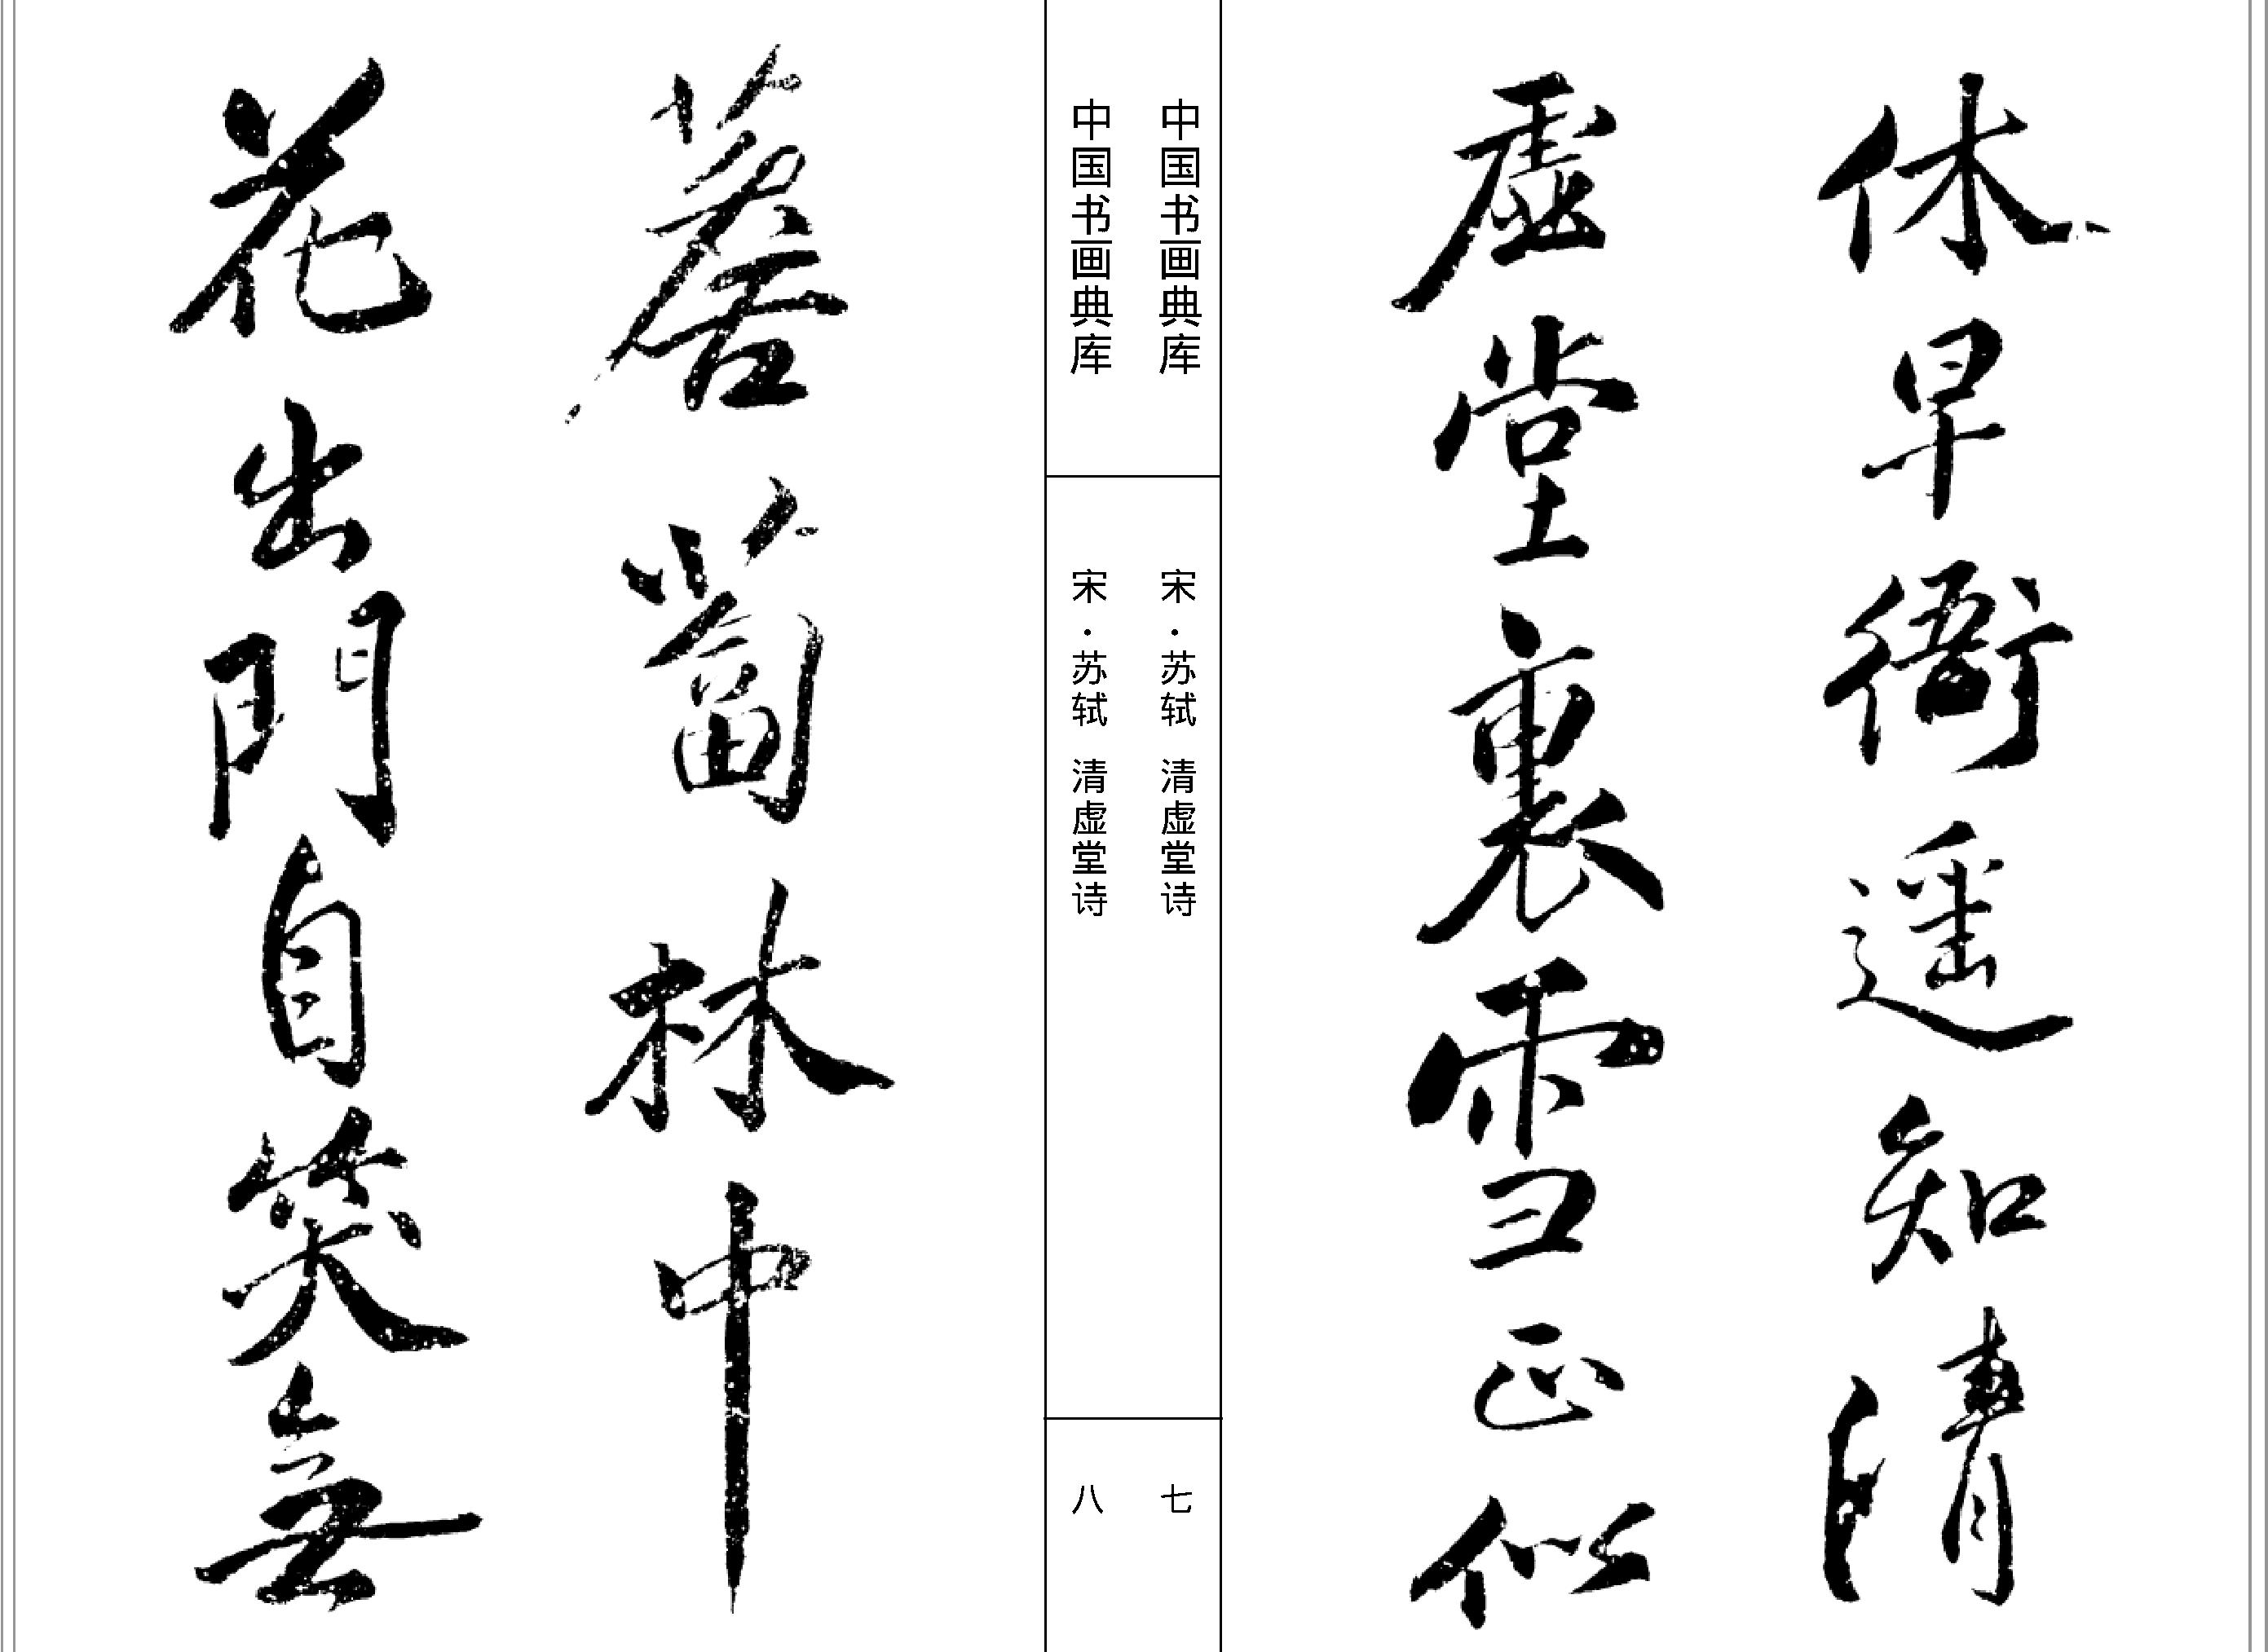 休早衙遥知清
虚堂裏雪正似
中国书画典库
宋·苏轼 清虚堂诗
七
中国书画典库
宋·苏轼 清虚堂诗
八
薝蔔林中
花出門自笑無